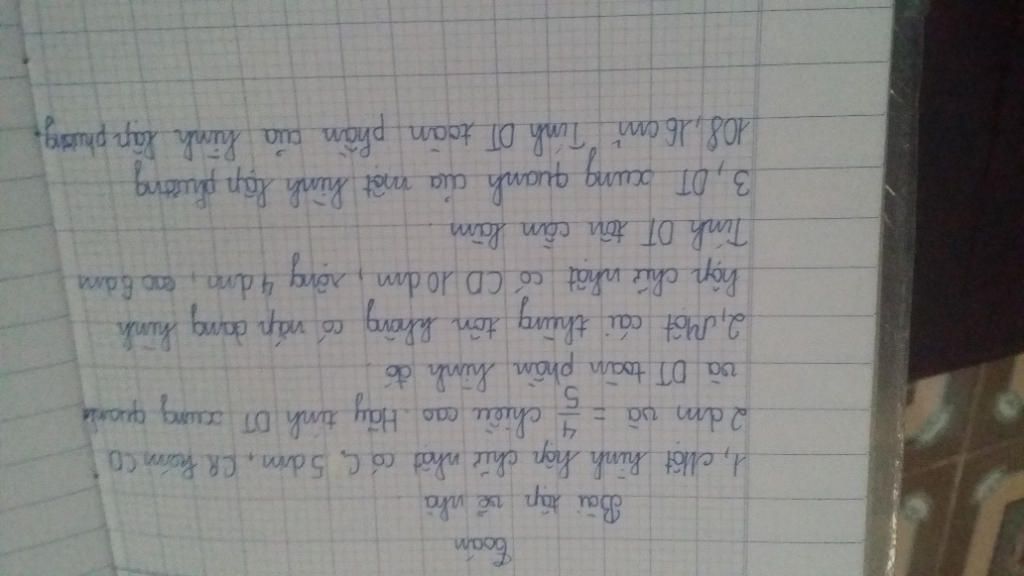 Toán
Bài tập về nhà
1, Một hình hộp chữ nhật có C, 5dm, CR kém CD
2dm và = 4/5 chiều cao. Hãy tính DT xung quanh
và DT toàn phần hình đó.
2, Một cái thùng tôn không có nắp dạng hình
hộp chữ nhật có CD 10dm, rộng 4dm, cao 6dm
Tính DT tôn cần làm.
3, DT xung quanh của một hình lập phương
108,16 cm². Tính DT toàn phần của hình lập phương.